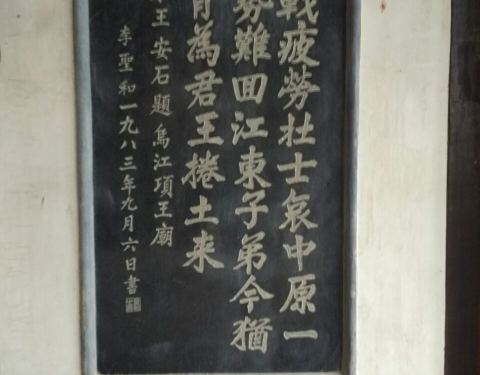 戰疲勞壯士哀中原一
勢難回江東子弟今猶
肯為君王捲土来
王安石題烏江項王廟
李聖和一九八三年九月六日書